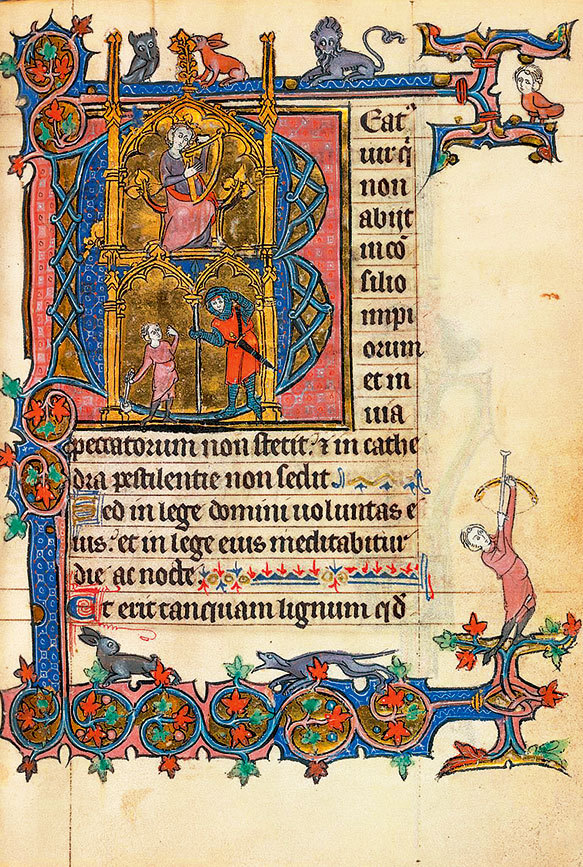 Eat⁹
uir q̃
non
abijt
in cõ
silio
impi
orum
et in
uia
peccatorum non stetit: ⁊ in cathe
dra pestilentie non sedit
Sed in lege domini uoluntas e
ius: et in lege eius meditabitur
die ac nocte:
Et erit tanquam lignum qđ